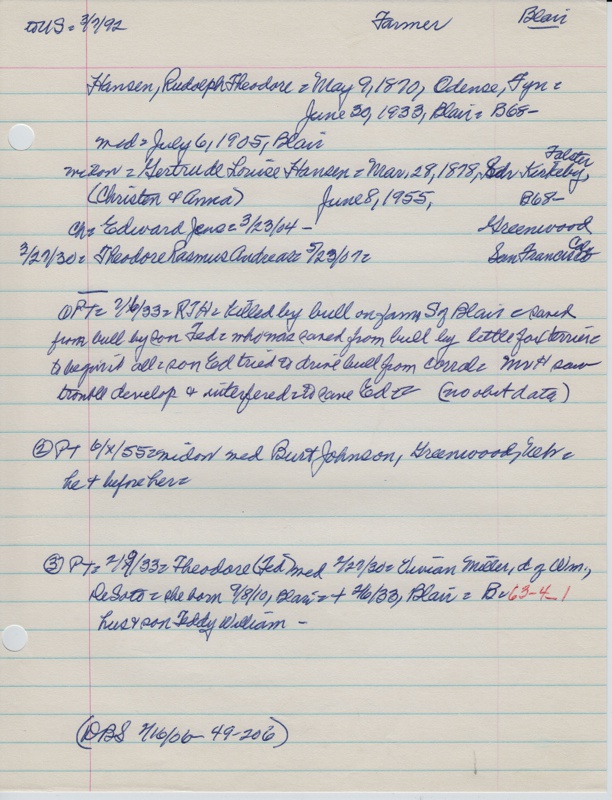 to US = 3/7/92 Farmer Blair
Hansen, Rudolph Theodore = May 9, 1870, Odense, Fyn =
June 30, 1933, Blair = B68-
med = July 6, 1905, Blair
Gertrude Louise Hansen = Mar. 28, 1878, Kirkeby, Falster
(Christen & Anna) June 8, 1955, B68-
ch = Edward Jens = 3/23/04 - Greenwood
3/27/30 = Theodore Rasmus Andreas = 5/23/07 = San Francisco
① PT = 7/6/33 = RTH = killed by bull on farm S of Blair = saved
from bull by son Ted = who was saved from bull by little fox terrier =
to begin it all = son Ed tried to drive bull from corral = Mr H saw
trouble develop & interfered = to save Ed (no obit data)
② PT 6/ /55 = widow med Burt Johnson, Greenwood, Neb =
he + before her =
③ PT = /33 = Theodore (Ted) med 2/27/30 = Vivian Miller, d of Wm.,
DeSoto = she born 9/8/10, Blair = + 2/6/33, Blair = B = 63-4-1
hus & son Teddy William -
(DBS 7/16/06 49-206)